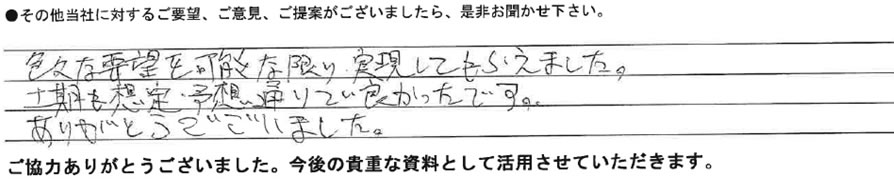 ●その他当社に対するご要望、ご意見、ご提案がございましたら、是非お聞かせ下さい。
色々な要望を可能な限り実現してもらえました。
工期も想定、予想通りで良かったです。
ありがとうございました。
ご協力ありがとうございました。今後の貴重な資料として活用させていただきます。